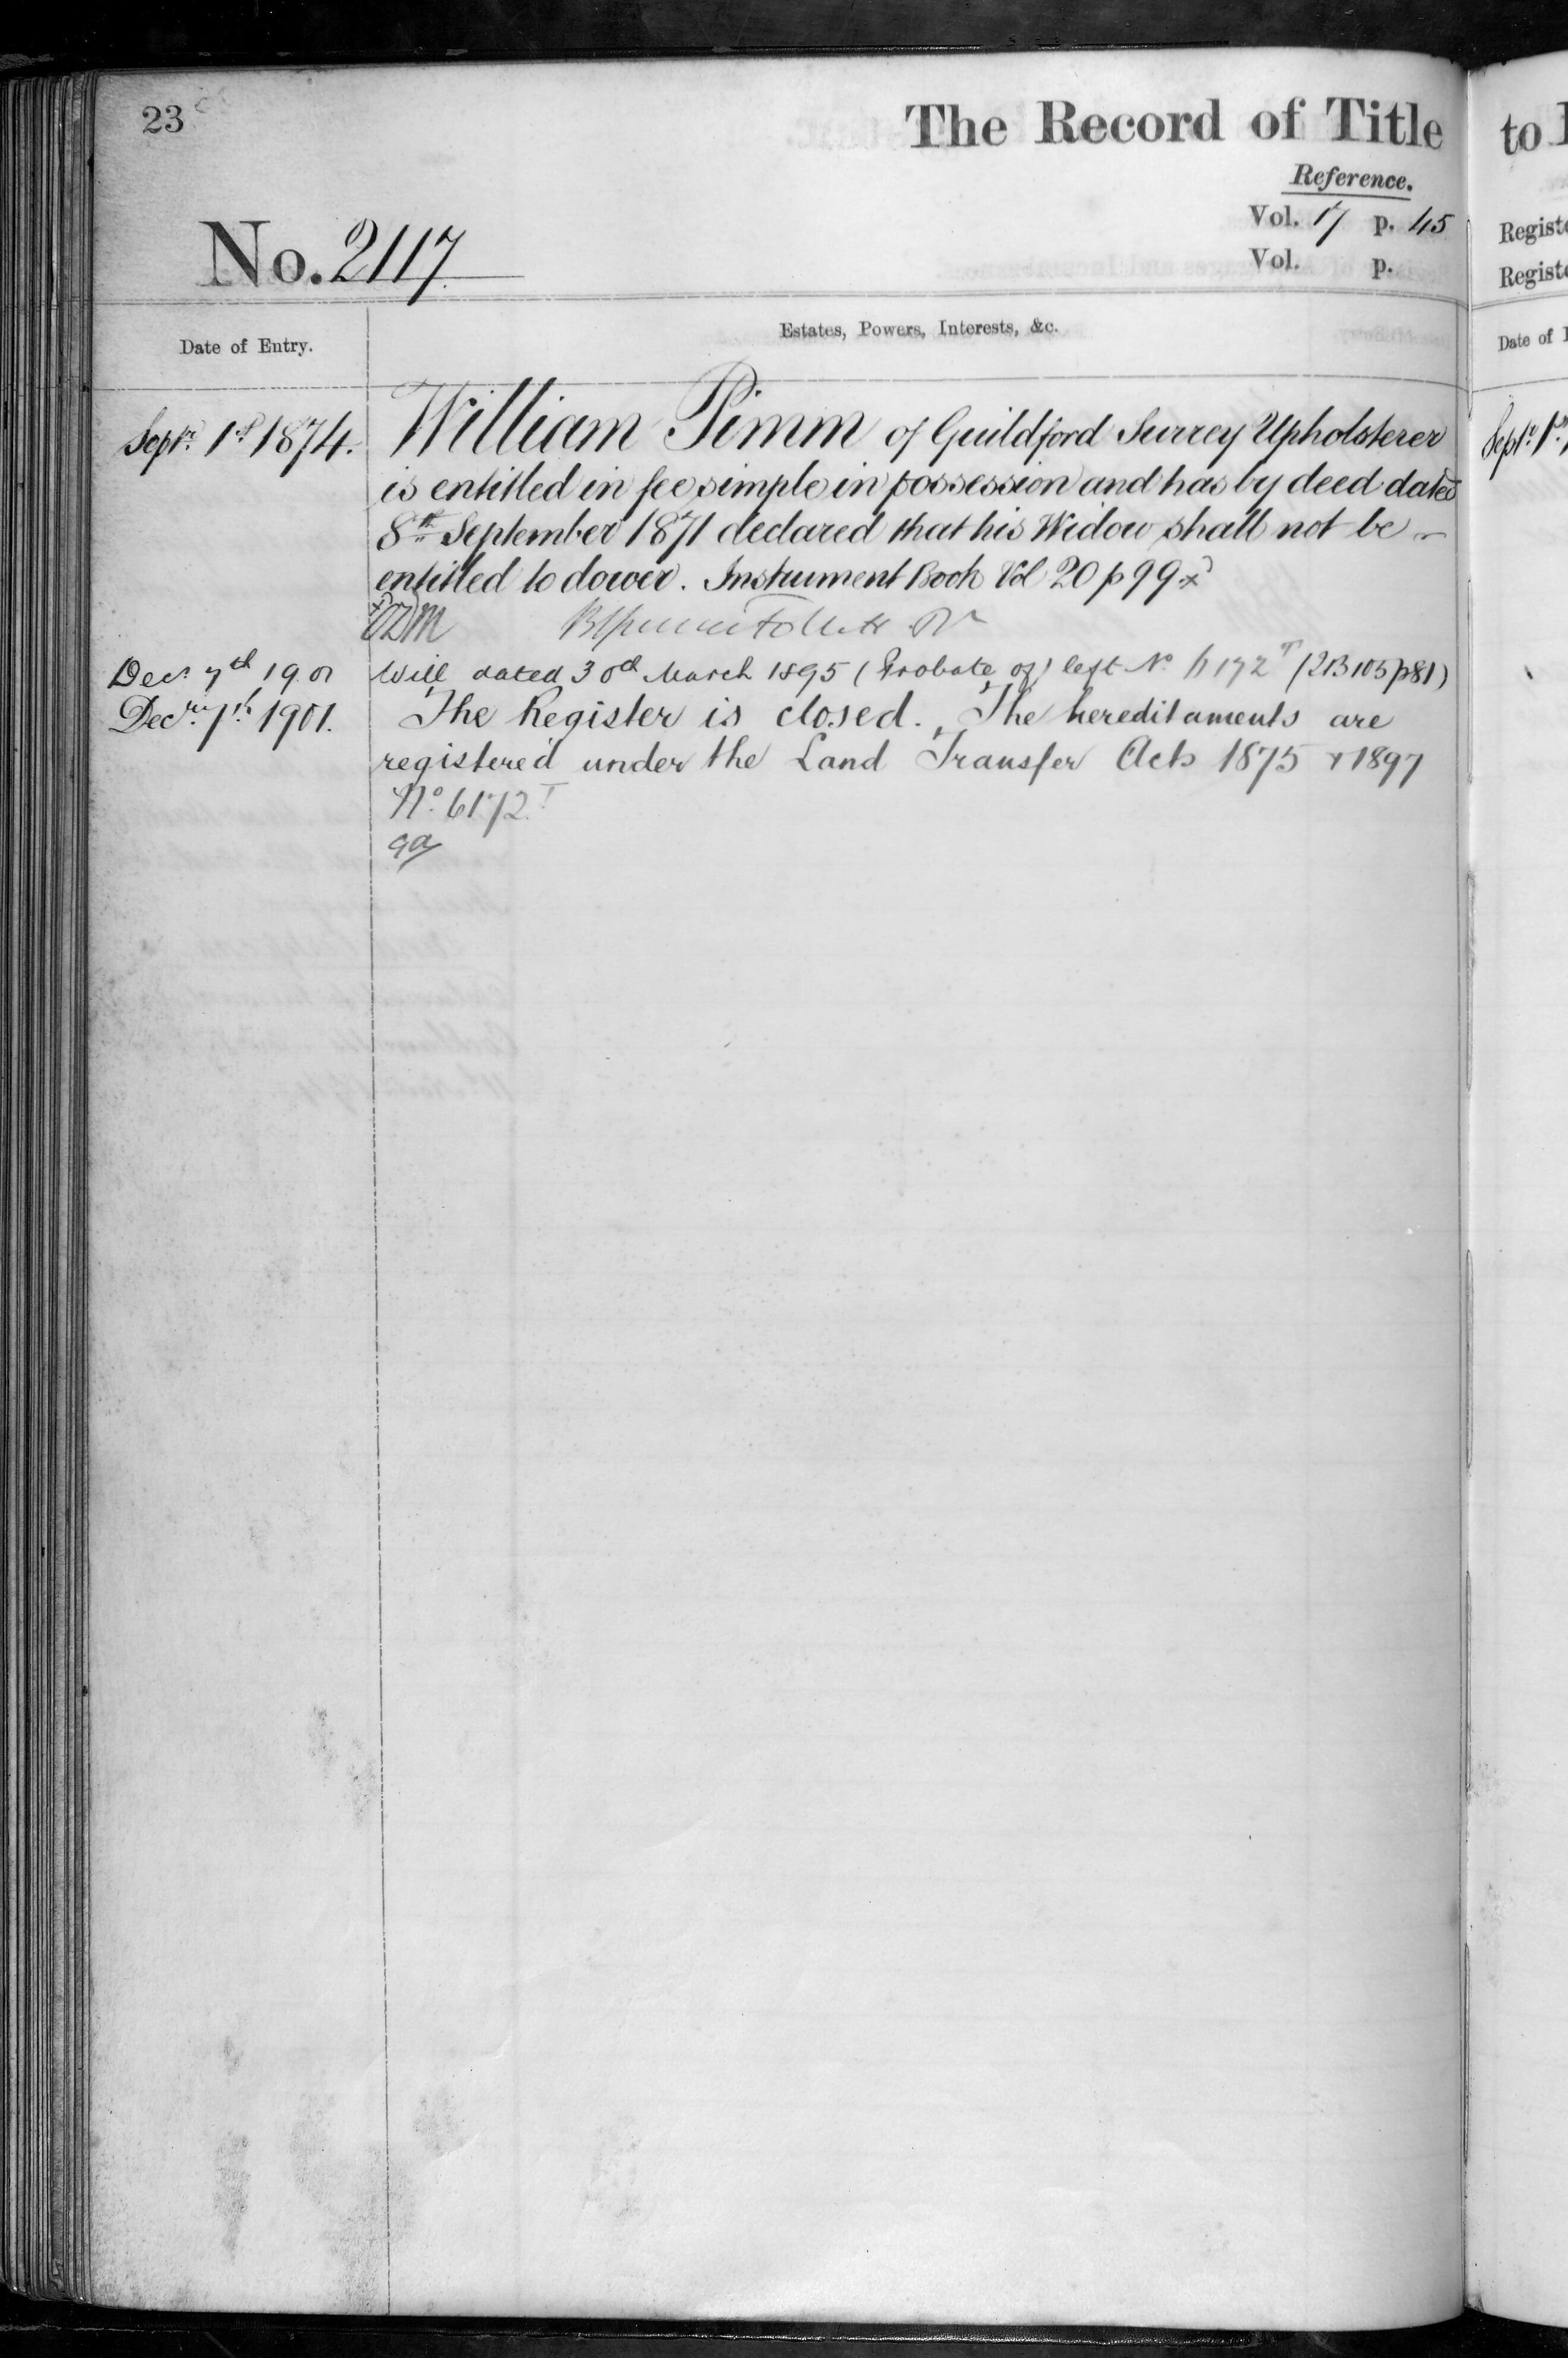 23
The Record of Title
Reference.
Vol. 17 p. 45
Vol. p.
No. 2117
Date of Entry.
Estates, Powers, Interests, &c.
Septr. 1st 1874. William Pimm of Guildford Surrey Upholsterer
is entitled in fee simple in possession and has by deed dated
8th September 1871 declared that his Widow shall not be
entitled to dower. Instrument Book Vol 20 p 99 x
Decr 7th 1901 Will dated 30th March 1895 (Probate of) left No 6172T (2B 105 p81)
Decr. 7th 1901. The Register is closed. The hereditaments are
registered under the Land Transfer Acts 1875 & 1897
No. 6172T
to
Registe
Registe
Date of
Septr. 1st